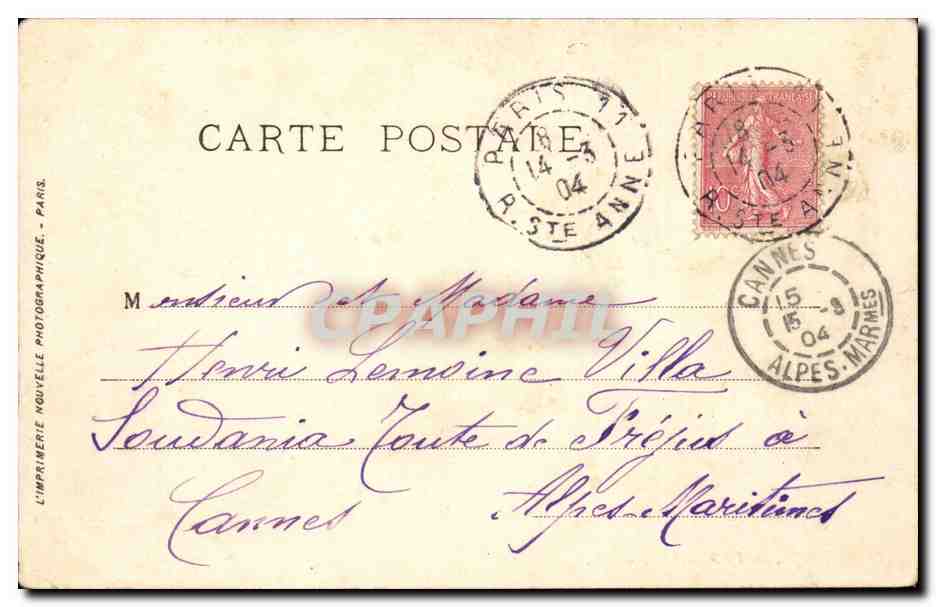 CARTE POSTALE
PARIS 11
18
14 -3
04
R. STE ANNE
REPUBLIQUE FRANÇAISE
PARIS 11
18
14 -3
04
R. STE ANNE
10c
CANNES
15
15 -3
04
ALPES-MARMES
Monsieur et Madame
Henri Lemoine Villa
Soudania Route de Fréjus à
Cannes Alpes-Maritimes
L'IMPRIMERIE NOUVELLE PHOTOGRAPHIQUE. - PARIS.
CPAPHIL